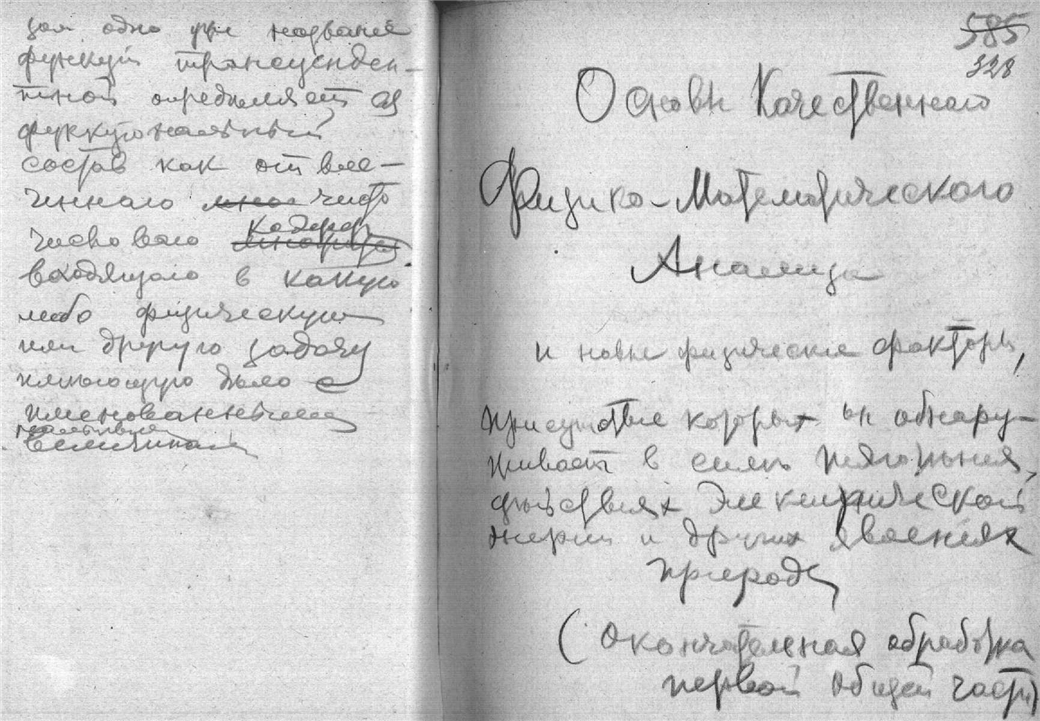 зом одно уже названiе
функцiй трансценден-
тной определяетъ ея
функцiональный
состав как отвле-
ченнаго чисто
числового
входящаго в какую
либо физическую
или другую задачу
имѣющую дѣло с
именованными
величинами
585
328
Основы Качественнаго
Физико-Математического
Анализа
и новые физическiе факторы,
присутствiе которых он обнару-
живаетъ в силѣ тяготѣнiя,
дѣйствiях Электрической
энергiи и других явленiях
природы
(Окончательная обработка
первой общей части)